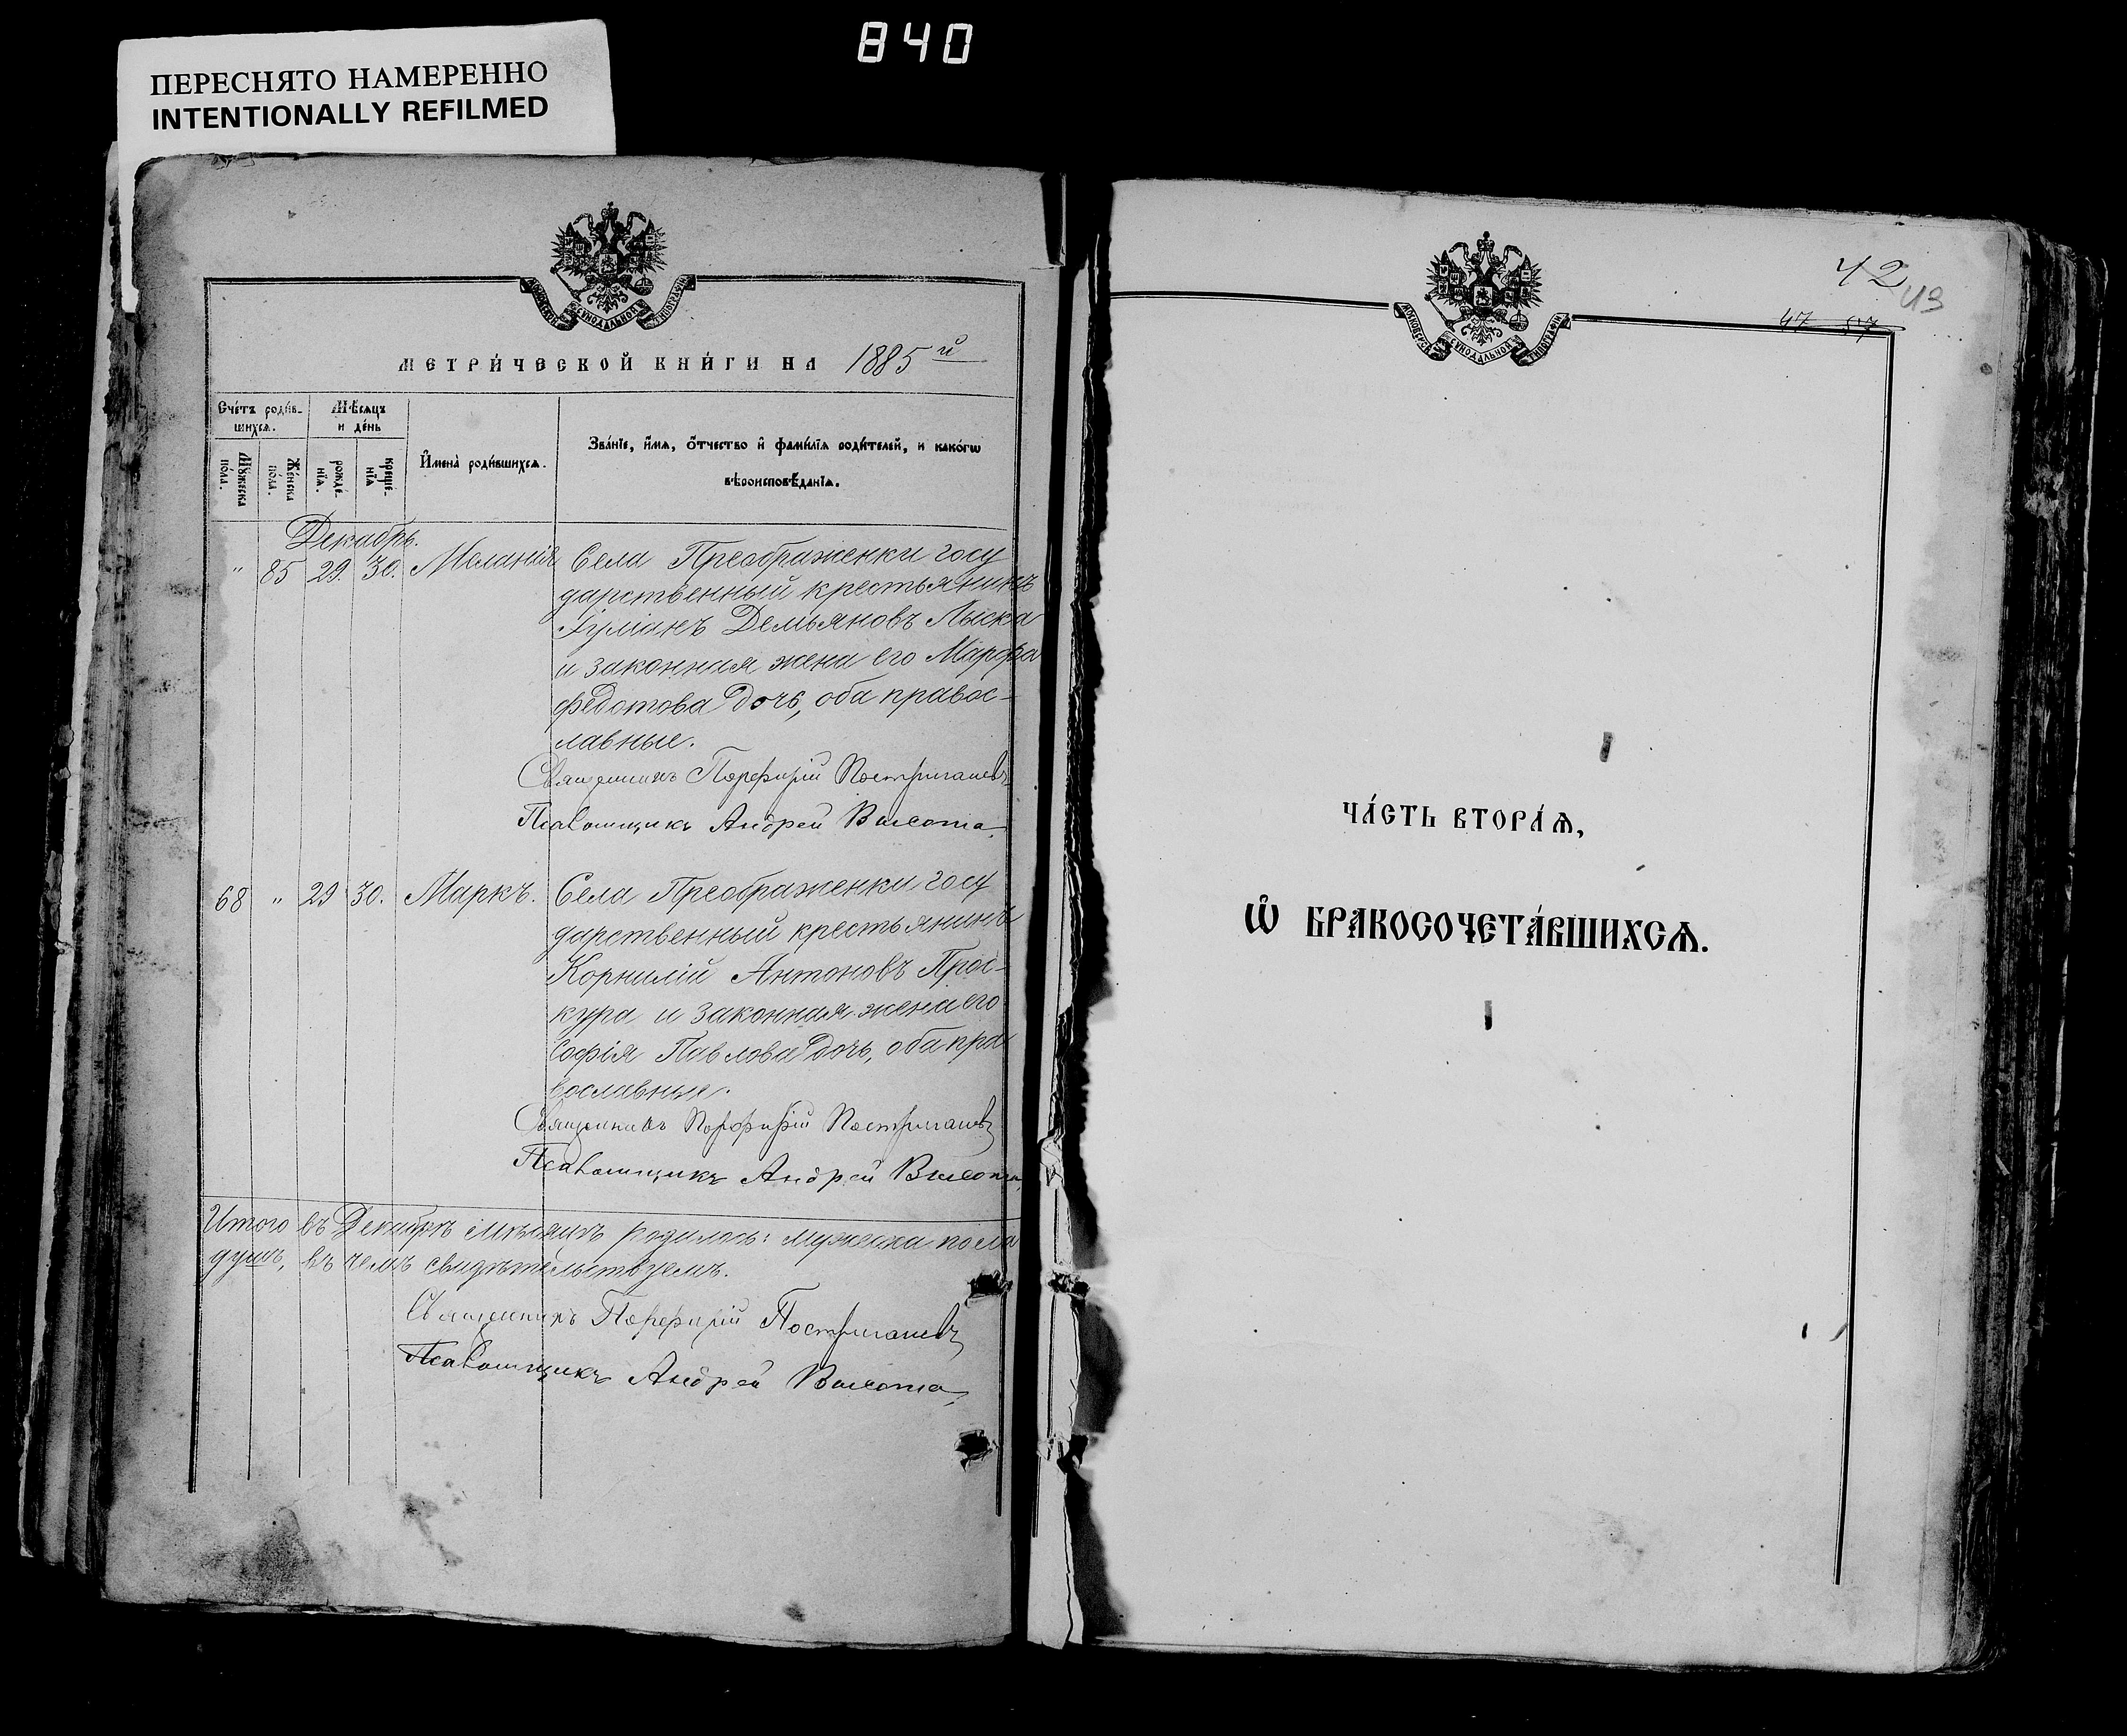 840
ПЕРЕСНЯТО НАМЕРЕННО
INTENTIONALLY REFILMED
МОСКОВСКОЙ СѴНОДАЛЬНОЙ ТИПОГРАФІИ
МЕТРИ́ЧЕСКОЙ КНИ́ГИ НА 1885й
Сче́тъ роди́в-
шихсѧ.
Мѣ́сѧцъ
и де́нь
Мꙋ́жеска
по́ла.
Же́нска
по́ла.
рожде́-
нїѧ.
креще́-
нїѧ
И҆мена̀ роди́вшихсѧ.
Зва́нїе, и҆́мѧ, о҆́тчество и҆ фами́лїѧ роди́телей, и како́гѡ
вѣроисповѣ́данїѧ.
Декабрь.
„ 85 29. 30. Меланія Села Преображенки госу
дарственный крестьянинъ
Іуліанъ Демьяновъ Лыска
и законная жена его Марфа
Федотова дочь, оба правос-
лавные.
Священникъ Порфирій
Псаломщикъ Андрей Высота
68 „ 29 30. Маркъ. Села Преображенки госу
дарственный крестьянинъ
Корнилій Антоновъ Прос-
кура и законная жена его
Софія Павлова дочь, оба пра
вославные.
Священникъ Порфирій
Псаломщикъ Андрей Высота
Итого въ Декабрѣ мѣсяцѣ родилось: мужеска пола
душъ, въ чемъ свидѣтельствуемъ.
Священникъ Порфирій
Псаломщикъ Андрей Высота
42
43
47 57
МОСКОВСКОЙ СѴНОДАЛЬНОЙ ТИПОГРАФІИ
ЧА́СТЬ ВТОРА́Ѧ,
Ѽ БРАКОСОЧЕТА́ВШИХСѦ.